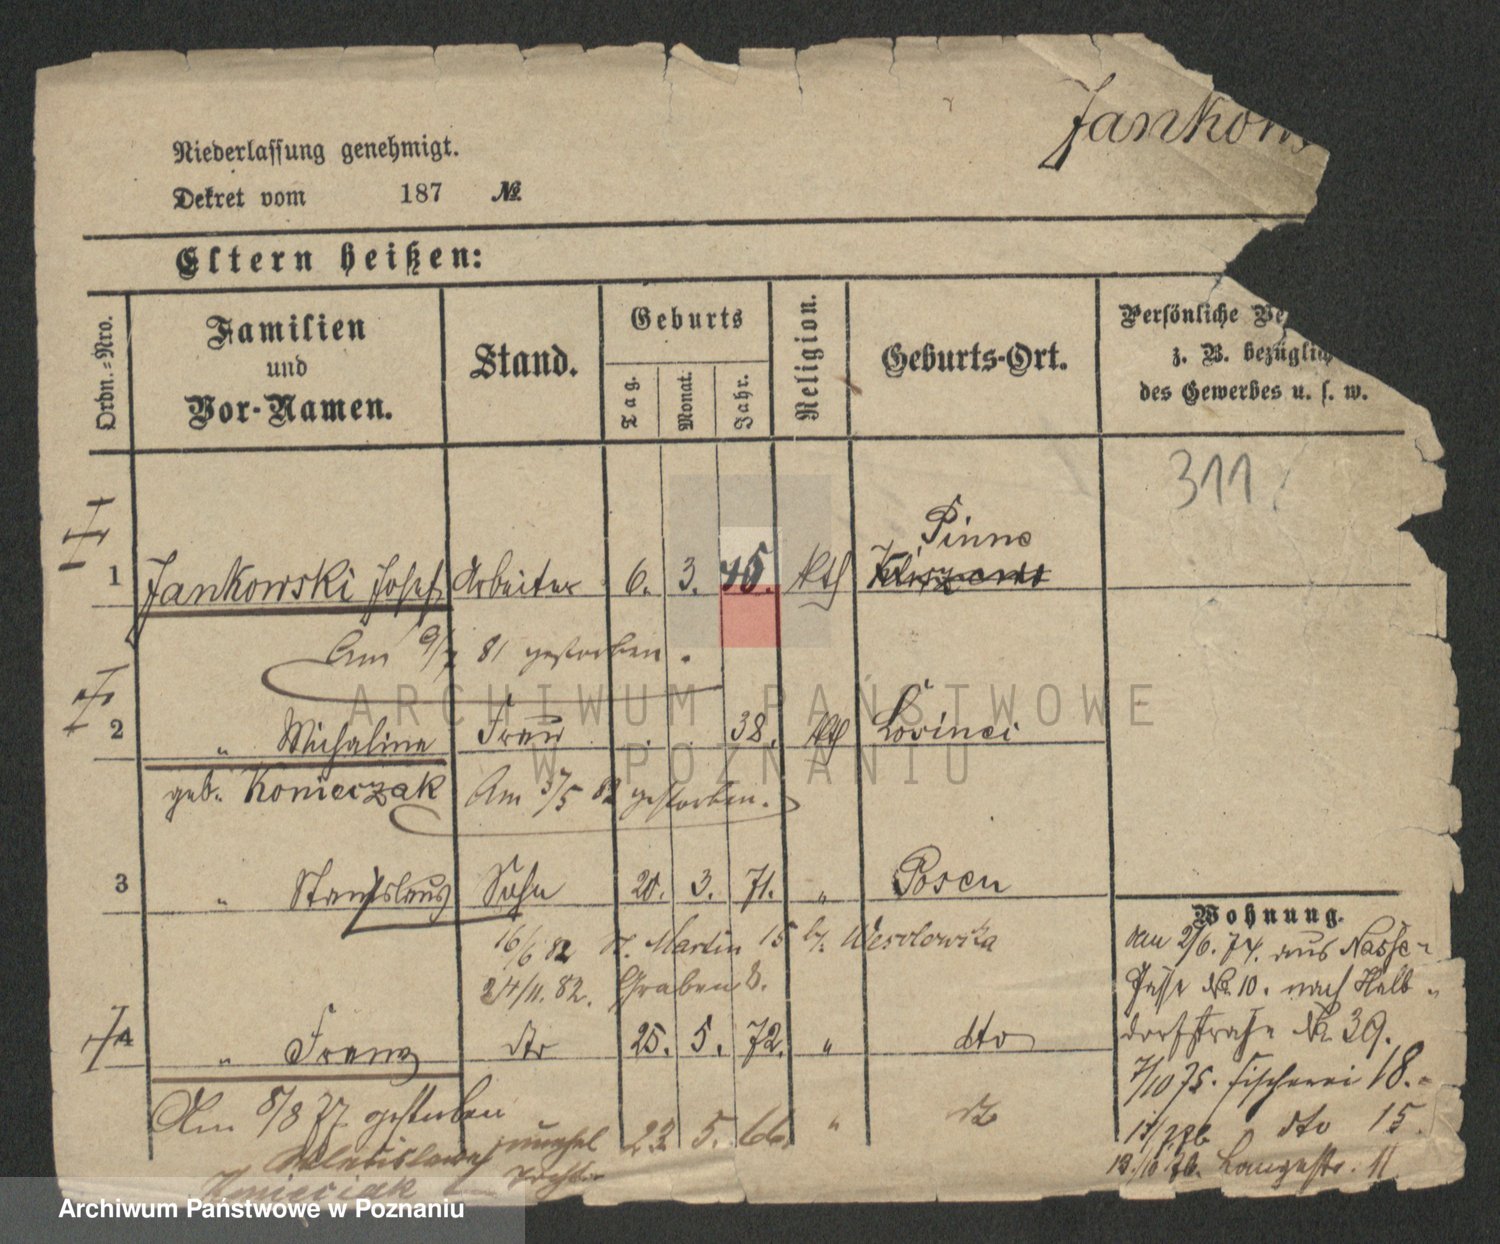 Jankows
Niederlassung genehmigt.
Dekret vom 187 №.
Eltern heißen:
Ordn.-Nro.
Familien
und
Vor-Namen.
Stand.
Geburts
Tag.
Monat.
Jahr.
Religion.
Geburts-Ort.
Persönliche Be
z. B. bezüglich
des Gewerbes u. s. w.
311
Pinne
1 Jankowski Josef Arbeiter 6. 3. 45. kth
Am 9/7 81 gestorben.
2 " Michalina Frau . . 38. kth Lovinci
geb. Konieczak Am 3/5 82 gestorben.
3 " Stanislaus Sohn 20. 3. 71. " Posen
16/6 82 St. Martin 15 b/. Wesolowska
24/11. 82. Graben 8.
4 " Franz dto 25. 5. 72. " dto
Am 8/8 77. gestorben
23. 5. 66. " dto
Wohnung.
den 2/6. 74. aus Nasse-
Gasse № 10. nach Halb-
dorfstraße № 39.
7/10 75. Fischerei 18.
dto 15.
13/10 76. Langestr. 11
ARCHIWUM PAŃSTWOWE
W POZNANIU
Archiwum Państwowe w Poznaniu